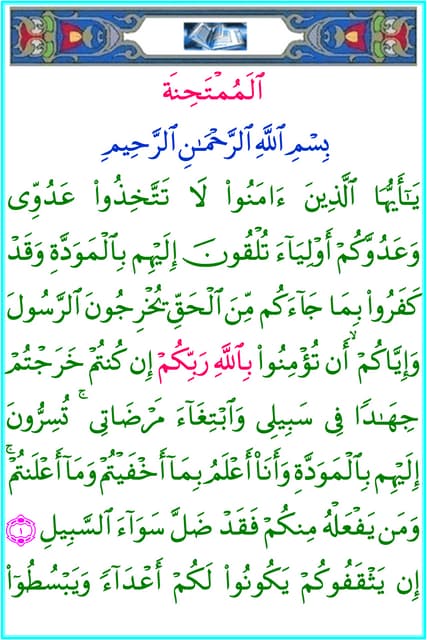 ٱلْمُمْتَحِنَة
بِسْمِ ٱللَّهِ ٱلرَّحْمَـٰنِ ٱلرَّحِيمِ
يَـٰٓأَيُّهَا ٱلَّذِينَ ءَامَنُوا۟ لَا تَتَّخِذُوا۟ عَدُوِّى
وَعَدُوَّكُمْ أَوْلِيَآءَ تُلْقُونَ إِلَيْهِم بِٱلْمَوَدَّةِ وَقَدْ
كَفَرُوا۟ بِمَا جَآءَكُم مِّنَ ٱلْحَقِّ يُخْرِجُونَ ٱلرَّسُولَ
وَإِيَّاكُمْ ۙ أَن تُؤْمِنُوا۟ بِٱللَّهِ رَبِّكُمْ إِن كُنتُمْ خَرَجْتُمْ
جِهَـٰدًا فِى سَبِيلِى وَٱبْتِغَآءَ مَرْضَاتِى ۚ تُسِرُّونَ
إِلَيْهِم بِٱلْمَوَدَّةِ وَأَنَا۠ أَعْلَمُ بِمَآ أَخْفَيْتُمْ وَمَآ أَعْلَنتُمْ ۚ
وَمَن يَفْعَلْهُ مِنكُمْ فَقَدْ ضَلَّ سَوَآءَ ٱلسَّبِيلِ ١
إِن يَثْقَفُوكُمْ يَكُونُوا۟ لَكُمْ أَعْدَآءً وَيَبْسُطُوٓا۟